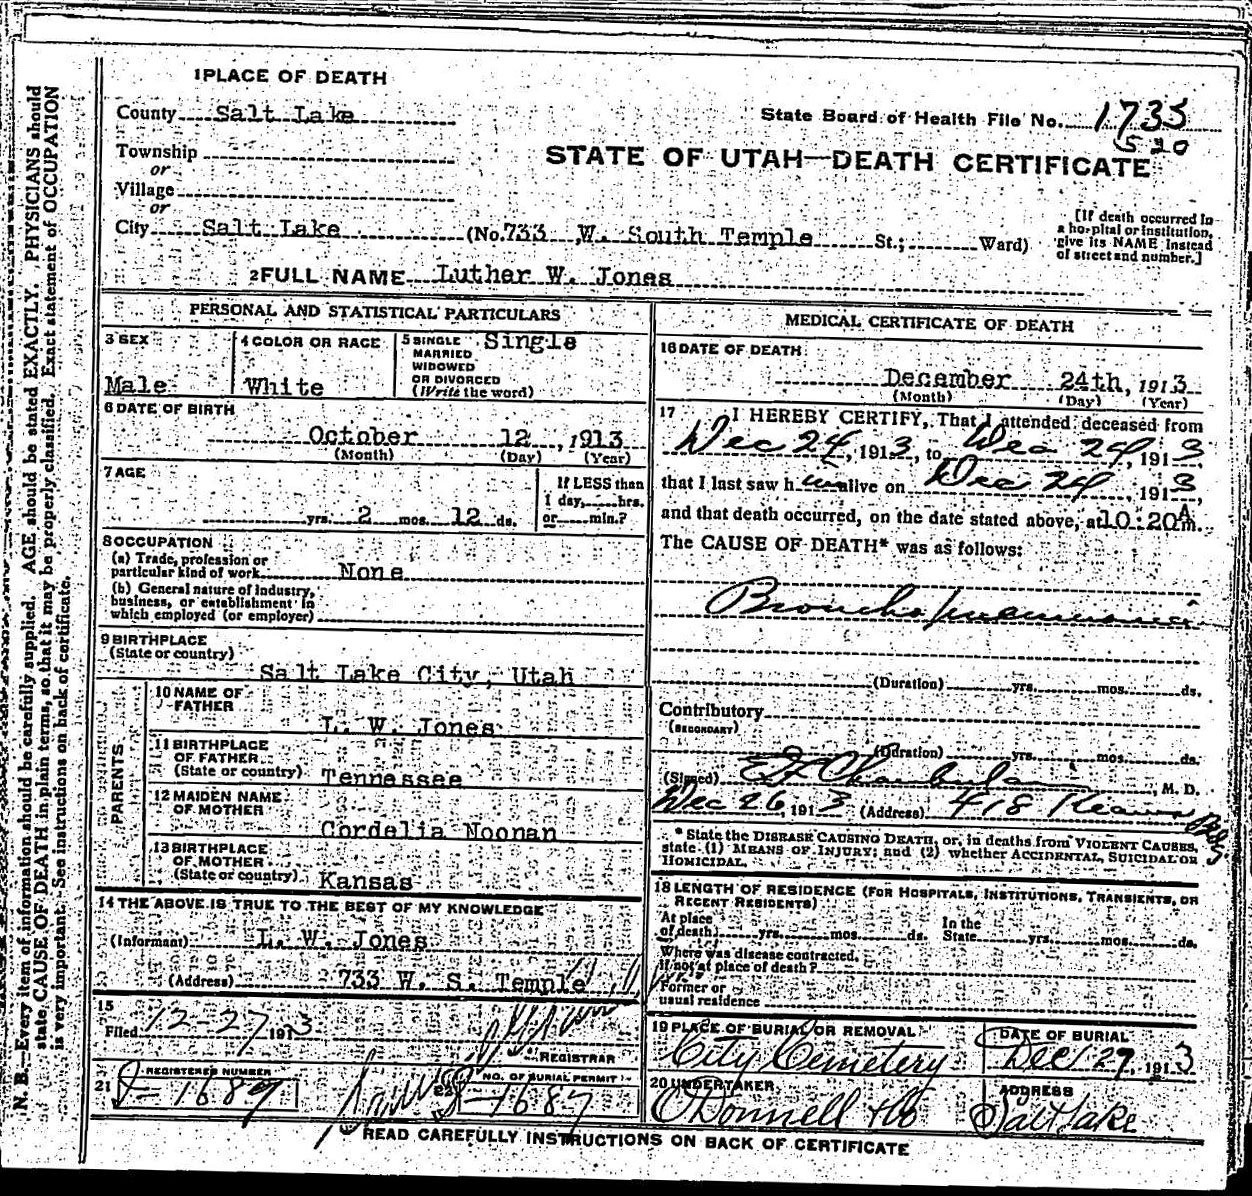 1 PLACE OF DEATH
County Salt Lake
State Board of Health File No. 1735
520
Township
or
Village
or
STATE OF UTAH—DEATH CERTIFICATE
City Salt Lake (No. 733 W. South Temple St.; Ward)
[If death occurred in a hospital or institution, give its NAME instead of street and number.]
2 FULL NAME Luther W. Jones
PERSONAL AND STATISTICAL PARTICULARS
3 SEX
Male
4 COLOR OR RACE
White
5 SINGLE MARRIED WIDOWED OR DIVORCED (Write the word)
Single
6 DATE OF BIRTH
October 12, 1913
(Month) (Day) (Year)
7 AGE
yrs. 2 mos. 12 ds.
If LESS than 1 day, hrs. or min.?
8 OCCUPATION
(a) Trade, profession or particular kind of work None
(b) General nature of Industry, business, or establishment in which employed (or employer)
9 BIRTHPLACE
(State or country)
Salt Lake City, Utah
PARENTS
10 NAME OF FATHER
L. W. Jones
11 BIRTHPLACE OF FATHER
(State or country) Tennessee
12 MAIDEN NAME OF MOTHER
Cordelia Noonan
13 BIRTHPLACE OF MOTHER
(State or country) Kansas
14 THE ABOVE IS TRUE TO THE BEST OF MY KNOWLEDGE
(Informant) L. W. Jones
(Address) 733 W. S. Temple
15
Filed 12-27 1913
REGISTRAR
21 REGISTERED NUMBER
1689
NO. OF BURIAL PERMIT
1687
MEDICAL CERTIFICATE OF DEATH
16 DATE OF DEATH
December 24th, 1913
(Month) (Day) (Year)
17 I HEREBY CERTIFY, That I attended deceased from
Dec 24, 1913, to Dec 24, 1913
that I last saw him alive on Dec 24, 1913,
and that death occurred, on the date stated above, at 10:20 A m.
The CAUSE OF DEATH* was as follows:
Broncho pneumonia
(Duration) yrs. mos. ds.
Contributory
(SECONDARY)
(Duration) yrs. mos. ds.
(Signed) Chamberlain, M. D.
Dec 26, 1913 (Address) 418 Kearns Bldg
* State the DISEASE CAUSING DEATH, or, in deaths from VIOLENT CAUSES, state (1) MEANS OF INJURY; and (2) whether ACCIDENTAL, SUICIDAL OR HOMICIDAL.
18 LENGTH OF RESIDENCE (FOR HOSPITALS, INSTITUTIONS, TRANSIENTS, OR RECENT RESIDENTS)
At place of death yrs. mos. ds. In the State yrs. mos. ds.
Where was disease contracted, If not at place of death?
Former or usual residence
19 PLACE OF BURIAL OR REMOVAL
City Cemetery
DATE OF BURIAL
Dec 29, 1913
20 UNDERTAKER
O'Donnell & Co
ADDRESS
Salt Lake
READ CAREFULLY INSTRUCTIONS ON BACK OF CERTIFICATE
N. B.—Every item of information should be carefully supplied. AGE should be stated EXACTLY. PHYSICIANS should
state CAUSE OF DEATH in plain terms, so that it may be properly classified. Exact statement of OCCUPATION
is very important. See instructions on back of certificate.